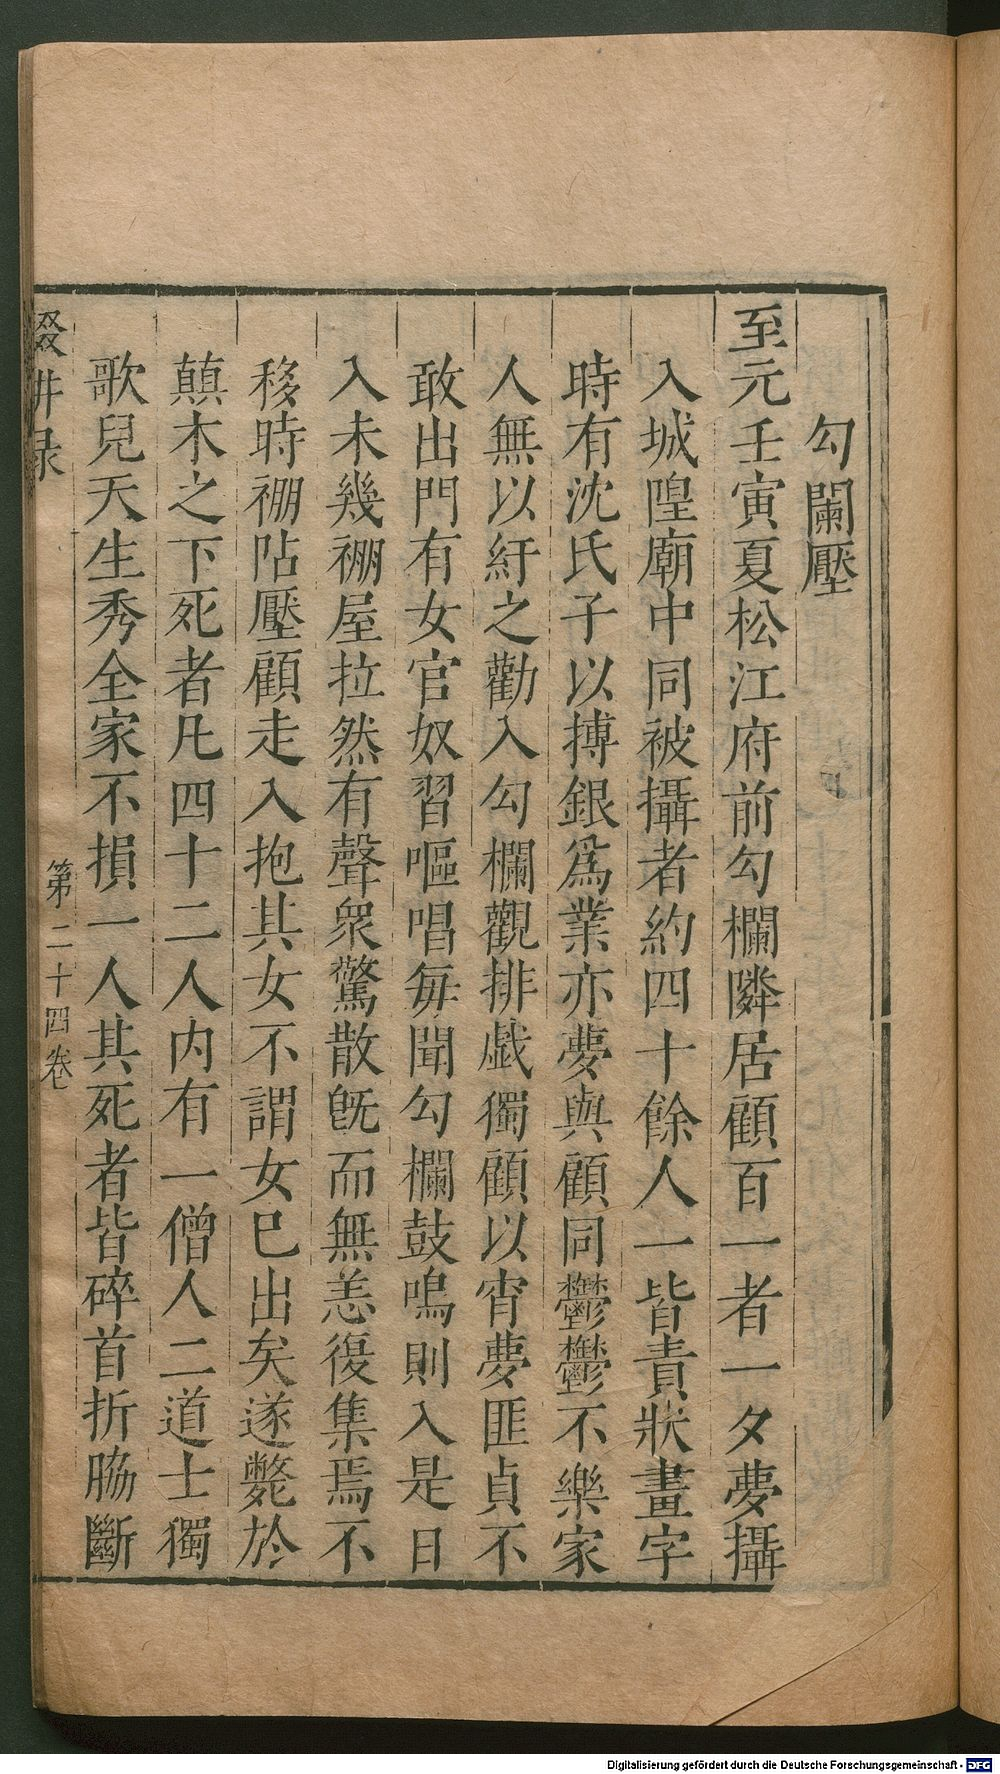 勾闌壓
至元壬寅夏松江府前勾欄隣居顧百一者一夕夢攝
入城隍廟中同被攝者約四十餘人一皆責狀畫字
時有沈氏子以搏銀爲業亦夢與顧同鬱鬱不樂家
人無以紓之勸入勾欄觀排戯獨顧以宵夢匪貞不
敢出門有女官奴習嘔唱每聞勾欄鼓鳴則入是日
入未幾棚屋拉然有聲衆驚散旣而無恙復集焉不
移時棚阽壓顧走入抱其女不謂女巳出矣遂斃於
顛木之下死者凡四十二人内有一僧人二道士獨
歌兒天生秀全家不損一人其死者皆碎首折脇斷
輟耕录 第二十四卷
Digitalisierung gefördert durch die Deutsche Forschungsgemeinschaft - DFG